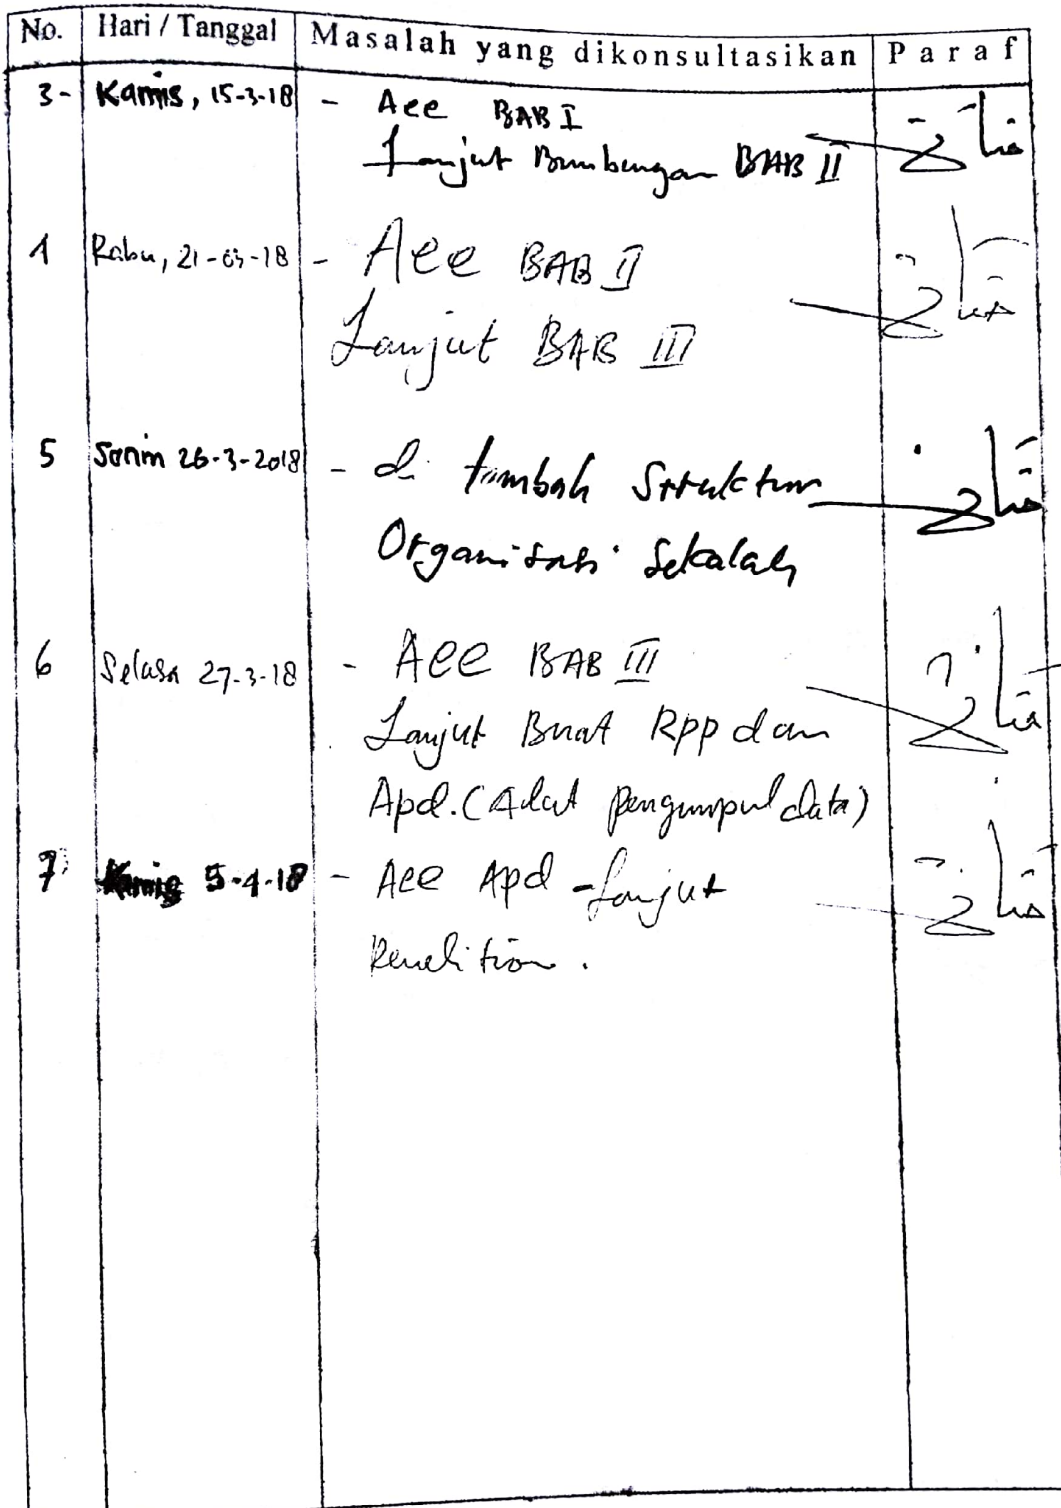 No. Hari / Tanggal Masalah yang dikonsultasikan Paraf
3- Kamis, 15-3-18 - Acc BAB I
Lanjut Bimbingan BAB II
4 Rabu, 21-03-18 - Acc BAB II
Lanjut BAB III
5 Senin 26-3-2018 - di tambah Struktur
Organisasi Sekolah
6 Selasa 27-3-18 - Acc BAB III
Lanjut Buat Rpp dan
Apd. (Alat pengumpul data)
7 Kamis 5-4-18 - Acc Apd - Lanjut
Penelitian.